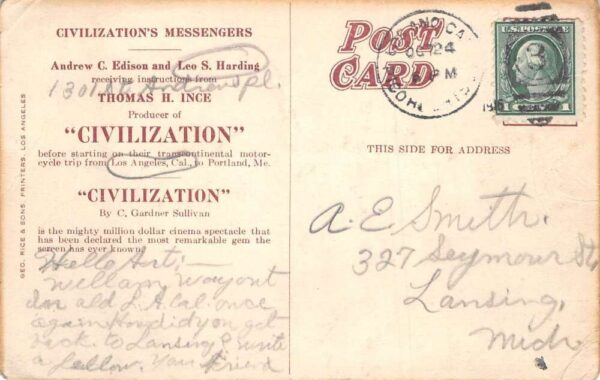 CIVILIZATION'S MESSENGERS
Andrew C. Edison and Leo S. Harding
receiving instructions from
1301 St. Andrews pl.
THOMAS H. INCE
Producer of
"CIVILIZATION"
before starting on their transcontinental motor-
cycle trip from Los Angeles, Cal., to Portland, Me.
"CIVILIZATION"
By C. Gardner Sullivan
is the mighty million dollar cinema spectacle that
has been declared the most remarkable gem the
screen has ever known.
Hello Art:—
well am way out
in old L.A. Cal. once
again. How did you get
back to Lansing & write
a fellow. Your friend
GEO. RICE & SONS, PRINTERS, LOS ANGELES
POST
CARD
OCT 24
PM
191
U.S. POSTAGE
1
THIS SIDE FOR ADDRESS
A. E. Smith.
327 Seymour St.
Lansing,
Mich.